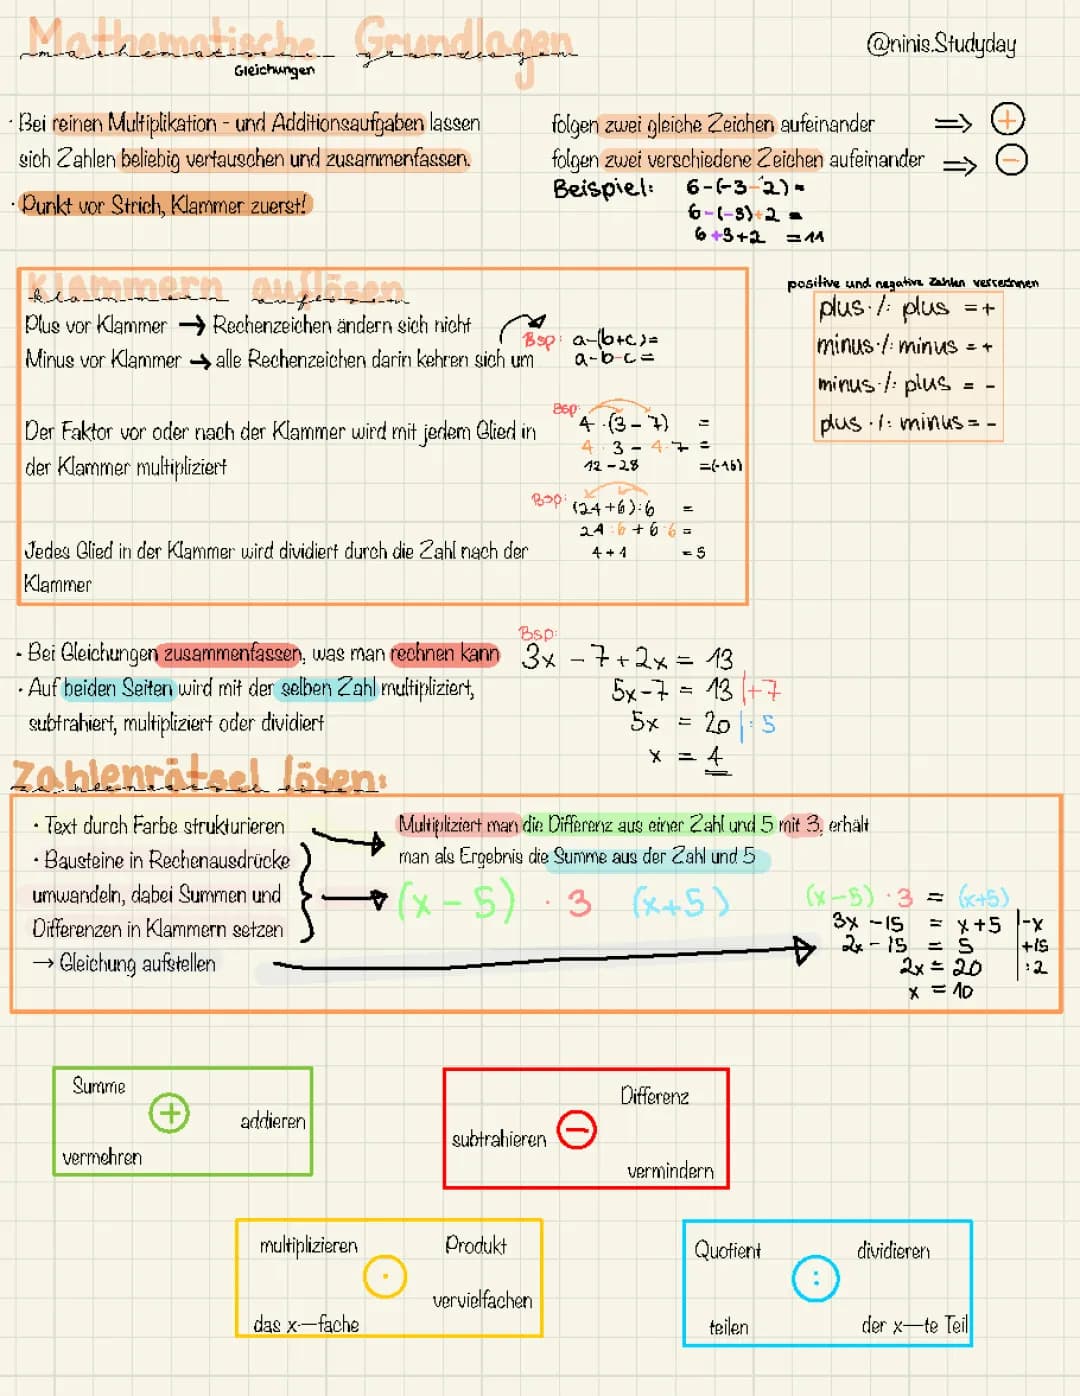 Mathematische Grundlagen
mathematische grundlagen
Gleichungen
@ninis.Studyday
· Bei reinen Multiplikation - und Additionsaufgaben lassen
sich Zahlen beliebig vertauschen und zusammenfassen.
· Punkt vor Strich, Klammer zuerst!
folgen zwei gleiche Zeichen aufeinander ⇒ +
folgen zwei verschiedene Zeichen aufeinander ⇒ −
Beispiel: 6-(-3-2)=
6-(-3)+2 =
6+3+2 =11
Klammern auflösen
klammern auflösen
Plus vor Klammer → Rechenzeichen ändern sich nicht
Minus vor Klammer → alle Rechenzeichen darin kehren sich um
Bsp: a-(b+c)=
a-b-c=
Der Faktor vor oder nach der Klammer wird mit jedem Glied in
der Klammer multipliziert
Bsp:
4·(3-7) =
4·3-4·7 =
12-28 =(-16)
Jedes Glied in der Klammer wird dividiert durch die Zahl nach der
Klammer
Bsp: (24+6):6 =
24:6+6:6=
4+1 =5
positive und negative Zahlen verrechnen
plus·/: plus =+
minus·/: minus =+
minus·/: plus = -
plus·/: minus= -
· Bei Gleichungen zusammenfassen, was man rechnen kann
· Auf beiden Seiten wird mit der selben Zahl multipliziert,
subtrahiert, multipliziert oder dividiert
Bsp:
3x-7+2x=13
5x-7=13 |+7
5x=20 |:5
x=4
Zahlenrätsel lösen:
zahlenrätsel lösen
· Text durch Farbe strukturieren
· Bausteine in Rechenausdrücke
umwandeln, dabei Summen und
Differenzen in Klammern setzen
→ Gleichung aufstellen
Multipliziert man die Differenz aus einer Zahl und 5 mit 3, erhält
man als Ergebnis die Summe aus der Zahl und 5
(x-5) · 3 (x+5)
(x-5)·3 = (x+5)
3x-15 = x+5 |-x
2x-15 = 5 |+15
2x=20 |:2
x=10
Summe
+
addieren
vermehren
Differenz
subtrahieren −
vermindern
multiplizieren Produkt
·
vervielfachen
das x-fache
Quotient dividieren
:
teilen der x-te Teil